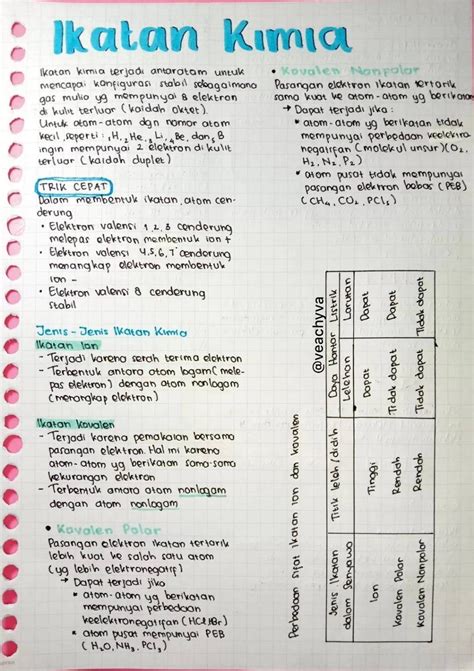 Ikatan Kimia
Ikatan kimia terjadi antaratom untuk
mencapai konfigurasi stabil sebagaimana
gas mulia yg mempunyai 8 elektron
di kulit terluar (kaidah oktet).
Untuk atom-atom dgn nomor atom
kecil, seperti, H, He, Li, Be, dan, B
ingin mempunyai 2 elektron di kulit
terluar (kaidah duplet)
TRIK CEPAT
Dalam membentuk ikatan, atom cen-
derung
• Elektron valensi 1, 2, 3 cenderung
melepas elektron membentuk ion +
• Elektron valensi 4, 5, 6, 7 cenderung
menangkap elektron membentuk
ion -
• Elektron valensi 8 cenderung
stabil
Jenis-Jenis Ikatan Kimia
Ikatan Ion
- Terjadi karena serah terima elektron
- Terbentuk antara atom logam (mele-
pas elektron) dengan atom nonlogam
(menangkap elektron)
Ikatan Kovalen
- Terjadi karena pemakaian bersama
pasangan elektron. Hal ini karena
atom-atom yg berikatan sama-sama
kekurangan elektron
- Terbentuk antara atom nonlogam
dengan atom nonlogam
• Kovalen Polar
Pasangan elektron ikatan tertarik
lebih kuat ke salah satu atom
(yg lebih elektronegatif)
→ Dapat terjadi jika
* atom-atom yg berikatan
mempunyai perbedaan
keelektronegatifan (HCl, HBr)
* atom pusat mempunyai PEB
(H2O, NH3, PCl3)
• Kovalen Nonpolar
Pasangan elektron ikatan tertarik
sama kuat ke atom-atom yg berikatan
→ Dapat terjadi jika :
* atom-atom yg berikatan tidak
mempunyai perbedaan keelektro-
negatifan (molekul unsur) (O2,
H2, N2, P2)
* atom pusat tidak mempunyai
pasangan elektron bebas (PEB)
(CH4, CO2, PCl5)
@veachyva
Perbedaan sifat ikatan ion dan kovalen
Jenis Ikatan dalam Senyawa
Titik leleh/didih
Daya Hantar Listrik
Lelehan
Larutan
Ion
Tinggi
Dapat
Dapat
Kovalen Polar
Rendah
Tidak dapat
Dapat
Kovalen Nonpolar
Rendah
Tidak dapat
Tidak dapat